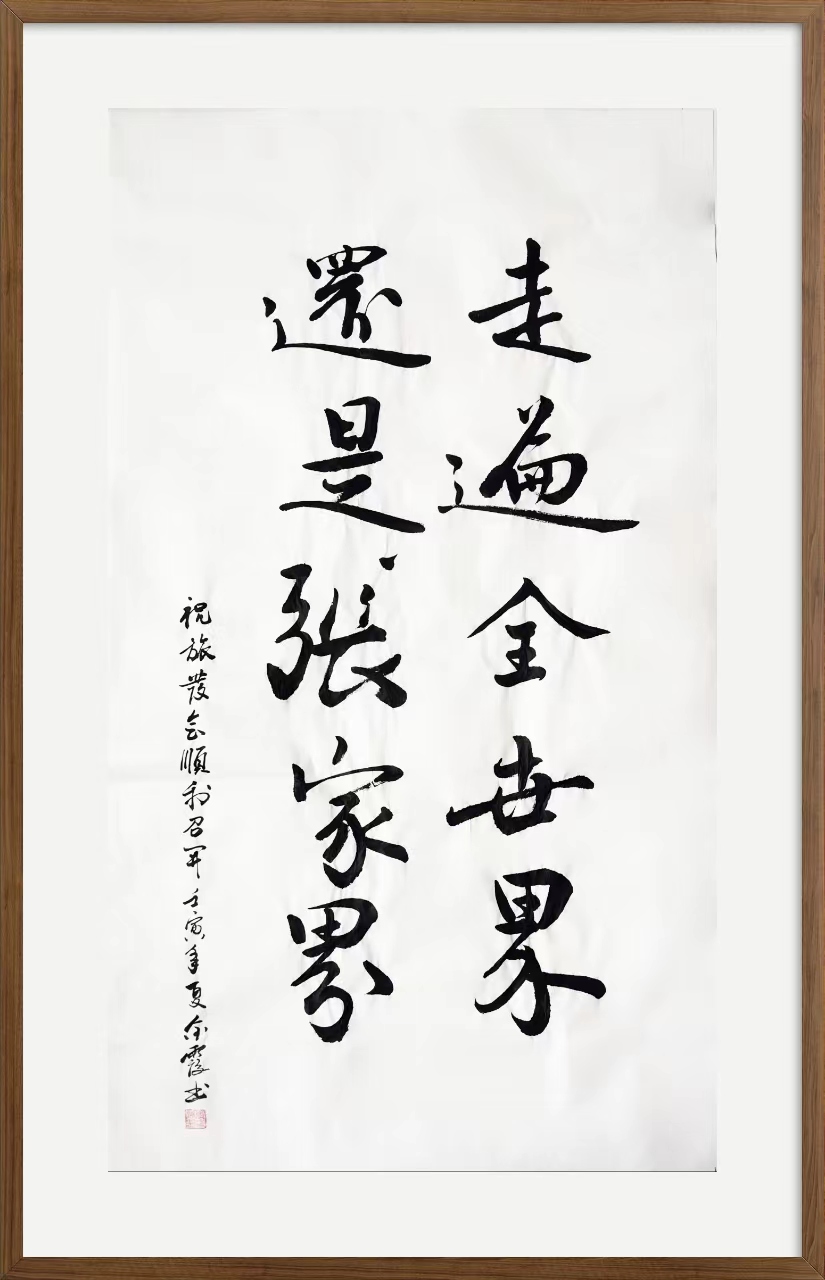 走遍全世界
還是張家界
祝旅發会順利召開壬寅年夏金霞书